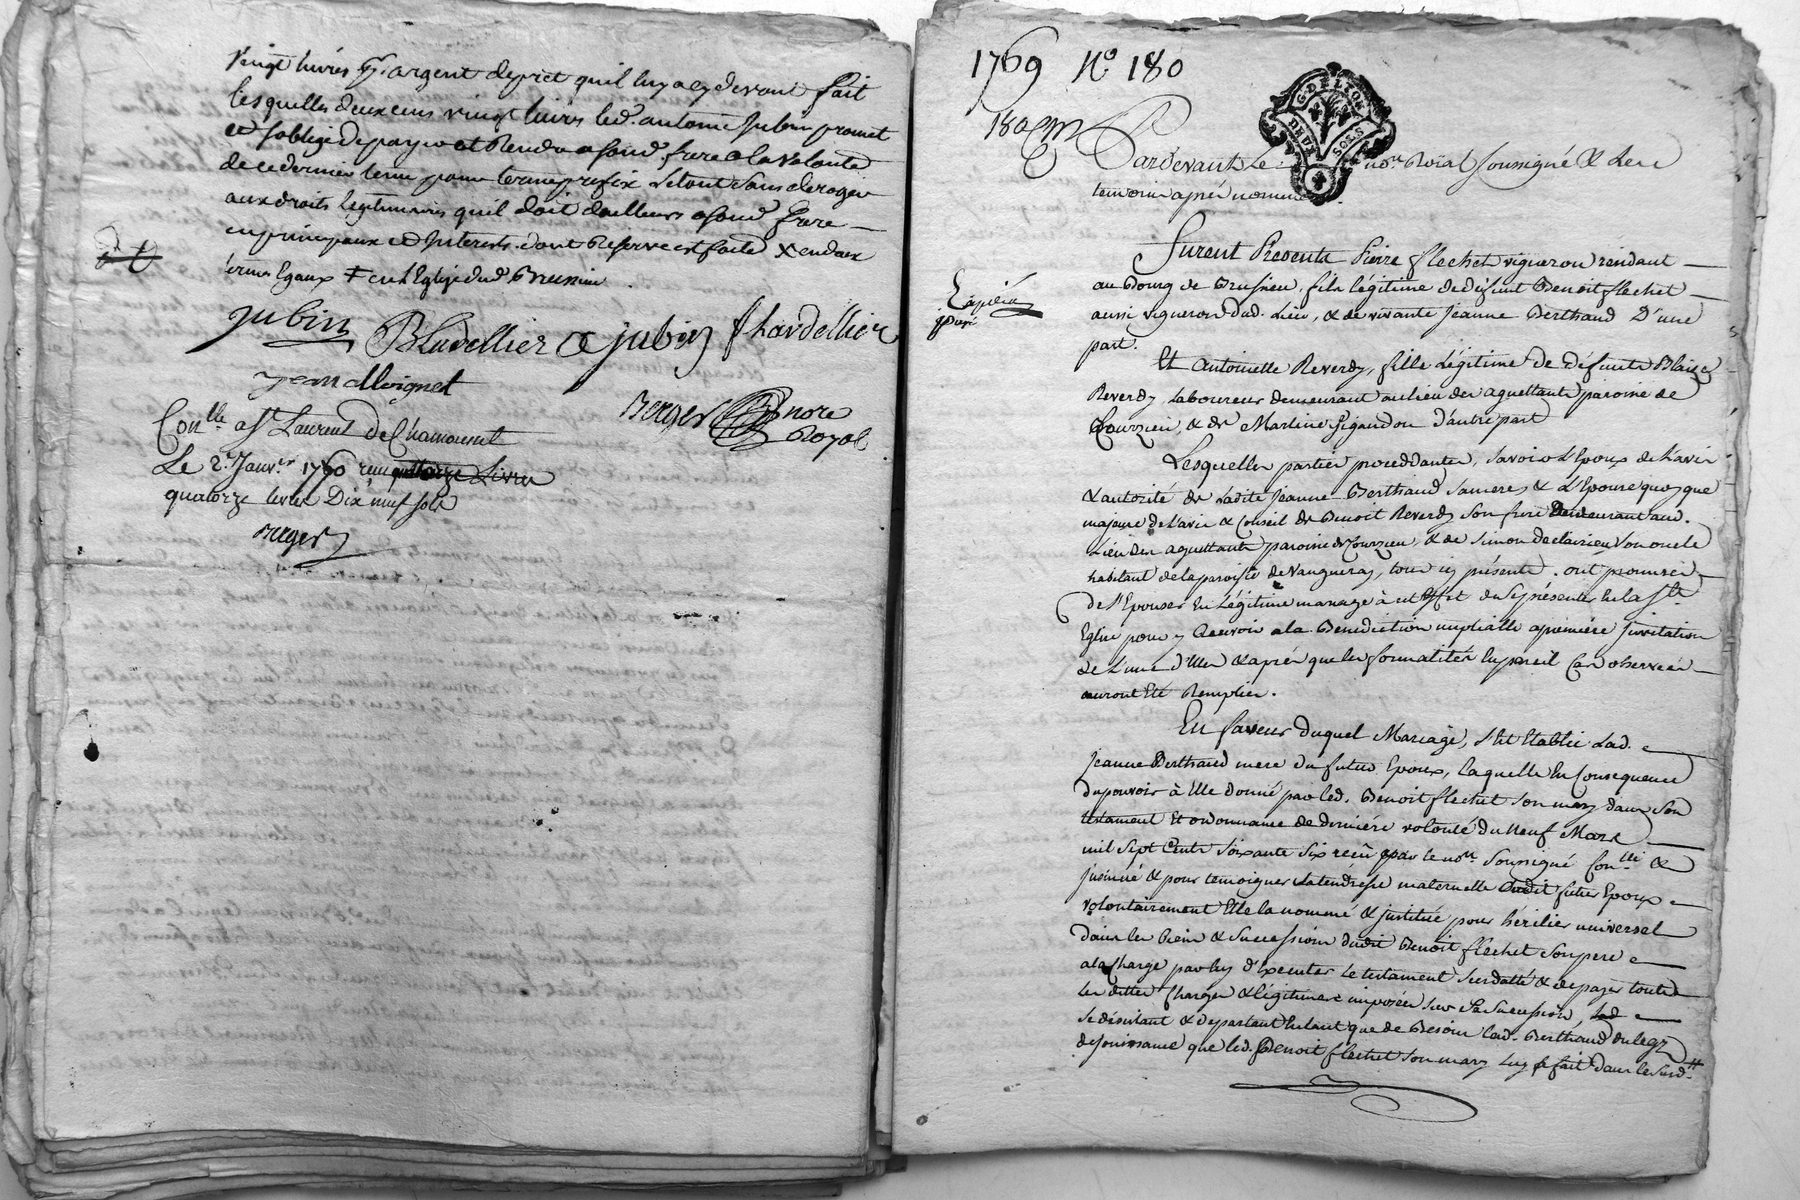 vingt livres p. argent de pret quil luy a cy devant fait
lesquelles deux cens vingt livres led. antoine Jubin promet
et soblige de payer et Rendre a sond. frere a la volonté
de ce dernier terme pour terme prefix Le tout sans deroger
aux droits Legitimaires quil doit dailleurs a sond. frere
en principaux et Interests dont Reserve est faite X en deux
termes Egaux ≠ en lEglise dud. Brussieu
Jubin Bludellier Jubin Chardellier
Jean Moignet
Berger nore
Royal
Con.lle a St Laurent de Chamousset
Le 2.e Janv.er 1760 reçu quatorze Livres
quatorze livres Dix neuf sols
Berger
1769 No 180
180
G. DE LION
DEUX SOLS
Pardevant Le no.re Roïal soussigné & les
temoins aprés nommés
Expédié
pour
Furent Présents Pierre flechet vigneron résidant
au Bourg de Brussieu, fils légitime de défunt Benoit flechet
aussi vigneron dud. Lieu, & de vivante Jeanne Berthaud D'une
part.
Et Antoinette Reverdy, fille Légitime de défunts Blaize
Reverdy, Laboureur demeurant au lieu des aguettants paroisse de
Courzieu, & de Martine Pigaudon d'autre part
Lesquelles parties proceddantes, savoir L'Epoux de L'avis
& autorité de Ladite Jeanne Berthaud sa mere, & L'Epouse quoy que
majeure de L'avis & Conseil de Benoit Reverdy son frere Demeurant aud.
Lieu des aguettants paroisse de Courzieu, & de Simon Declairieu son oncle
habitant de la paroisse de Vaugneray, tous icy présents. ont promis
de s'Epouser En Légitime mariage à cet Effet de se présenter En la Ste
Eglise pour y Recevoir a la Benediction nuptialle a premiére Invitation
de L'une d'Elles & aprés que les formalités En pareil Cas observées
auront Eté Remplies.
En faveur duquel Mariage, s'est Etablie Lad.
Jeanne Berthaud mere du futur Epoux, Laquelle En Consequence
du pouvoir à Elle donné par led. Benoit flechet son mary dans son
testament Et ordonnance de derniére volonté du Neuf Mars
mil Sept Cents Soixante Six reçu par le no.re Soussigné Con.llé &
Jnsinué & pour temoigner sa tendresse maternelle audit futur Epoux
volontairement Elle la nommé & Jnstitué pour héritier universel
dans les Biens & Succession dudit Benoit flechet son pere
a la Charge par luy d'Executer Le testament Susdatté & de payer toutes
les dettes Charges & légitimes imposées sur Sa Succession,
se désistant & départant En tant que de Besoin Lad. Berthaud du legs
de Jouissance que led. Benoit flechet son mary Luy a fait dans le Susd.tt